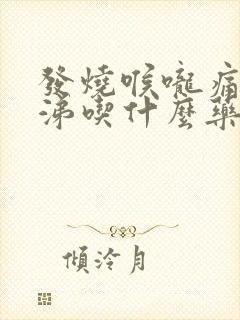 發燒喉嚨痛
涕喫什麼藥
傾泠月